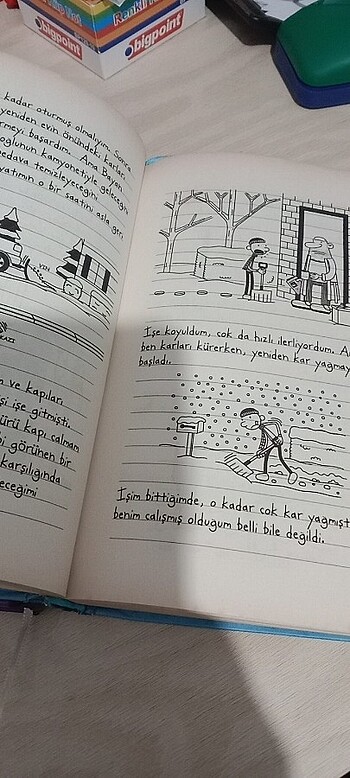 bigpoint
Renkli
bigpoint
kadar oturmuş olmalıyım. Sonra
yeniden evin önündeki karları
meyi başardım. Ama Bayan
oglunun kamyonetiyle geleceğin
bedava temizleyeceğini
vatımın o bir saatini asla geri
n ve kapıları
şi işe gitmişti.
ürü kapı çalmam
bi görünen bir
karşılığında
eceğimi
İşe koyuldum, çok da hızlı ilerliyordum. A
ben karları kürerken, yeniden kar yağmay
başladı.
İşim bittiğimde, o kadar çok kar yağmıst
benim çalışmış olduğum belli bile değildi.